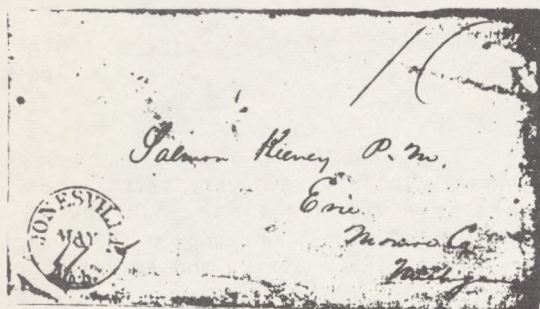 10
Salmon Keeney P. M.
Erie
Monroe Co
Mich
JONESVILLE
MAY